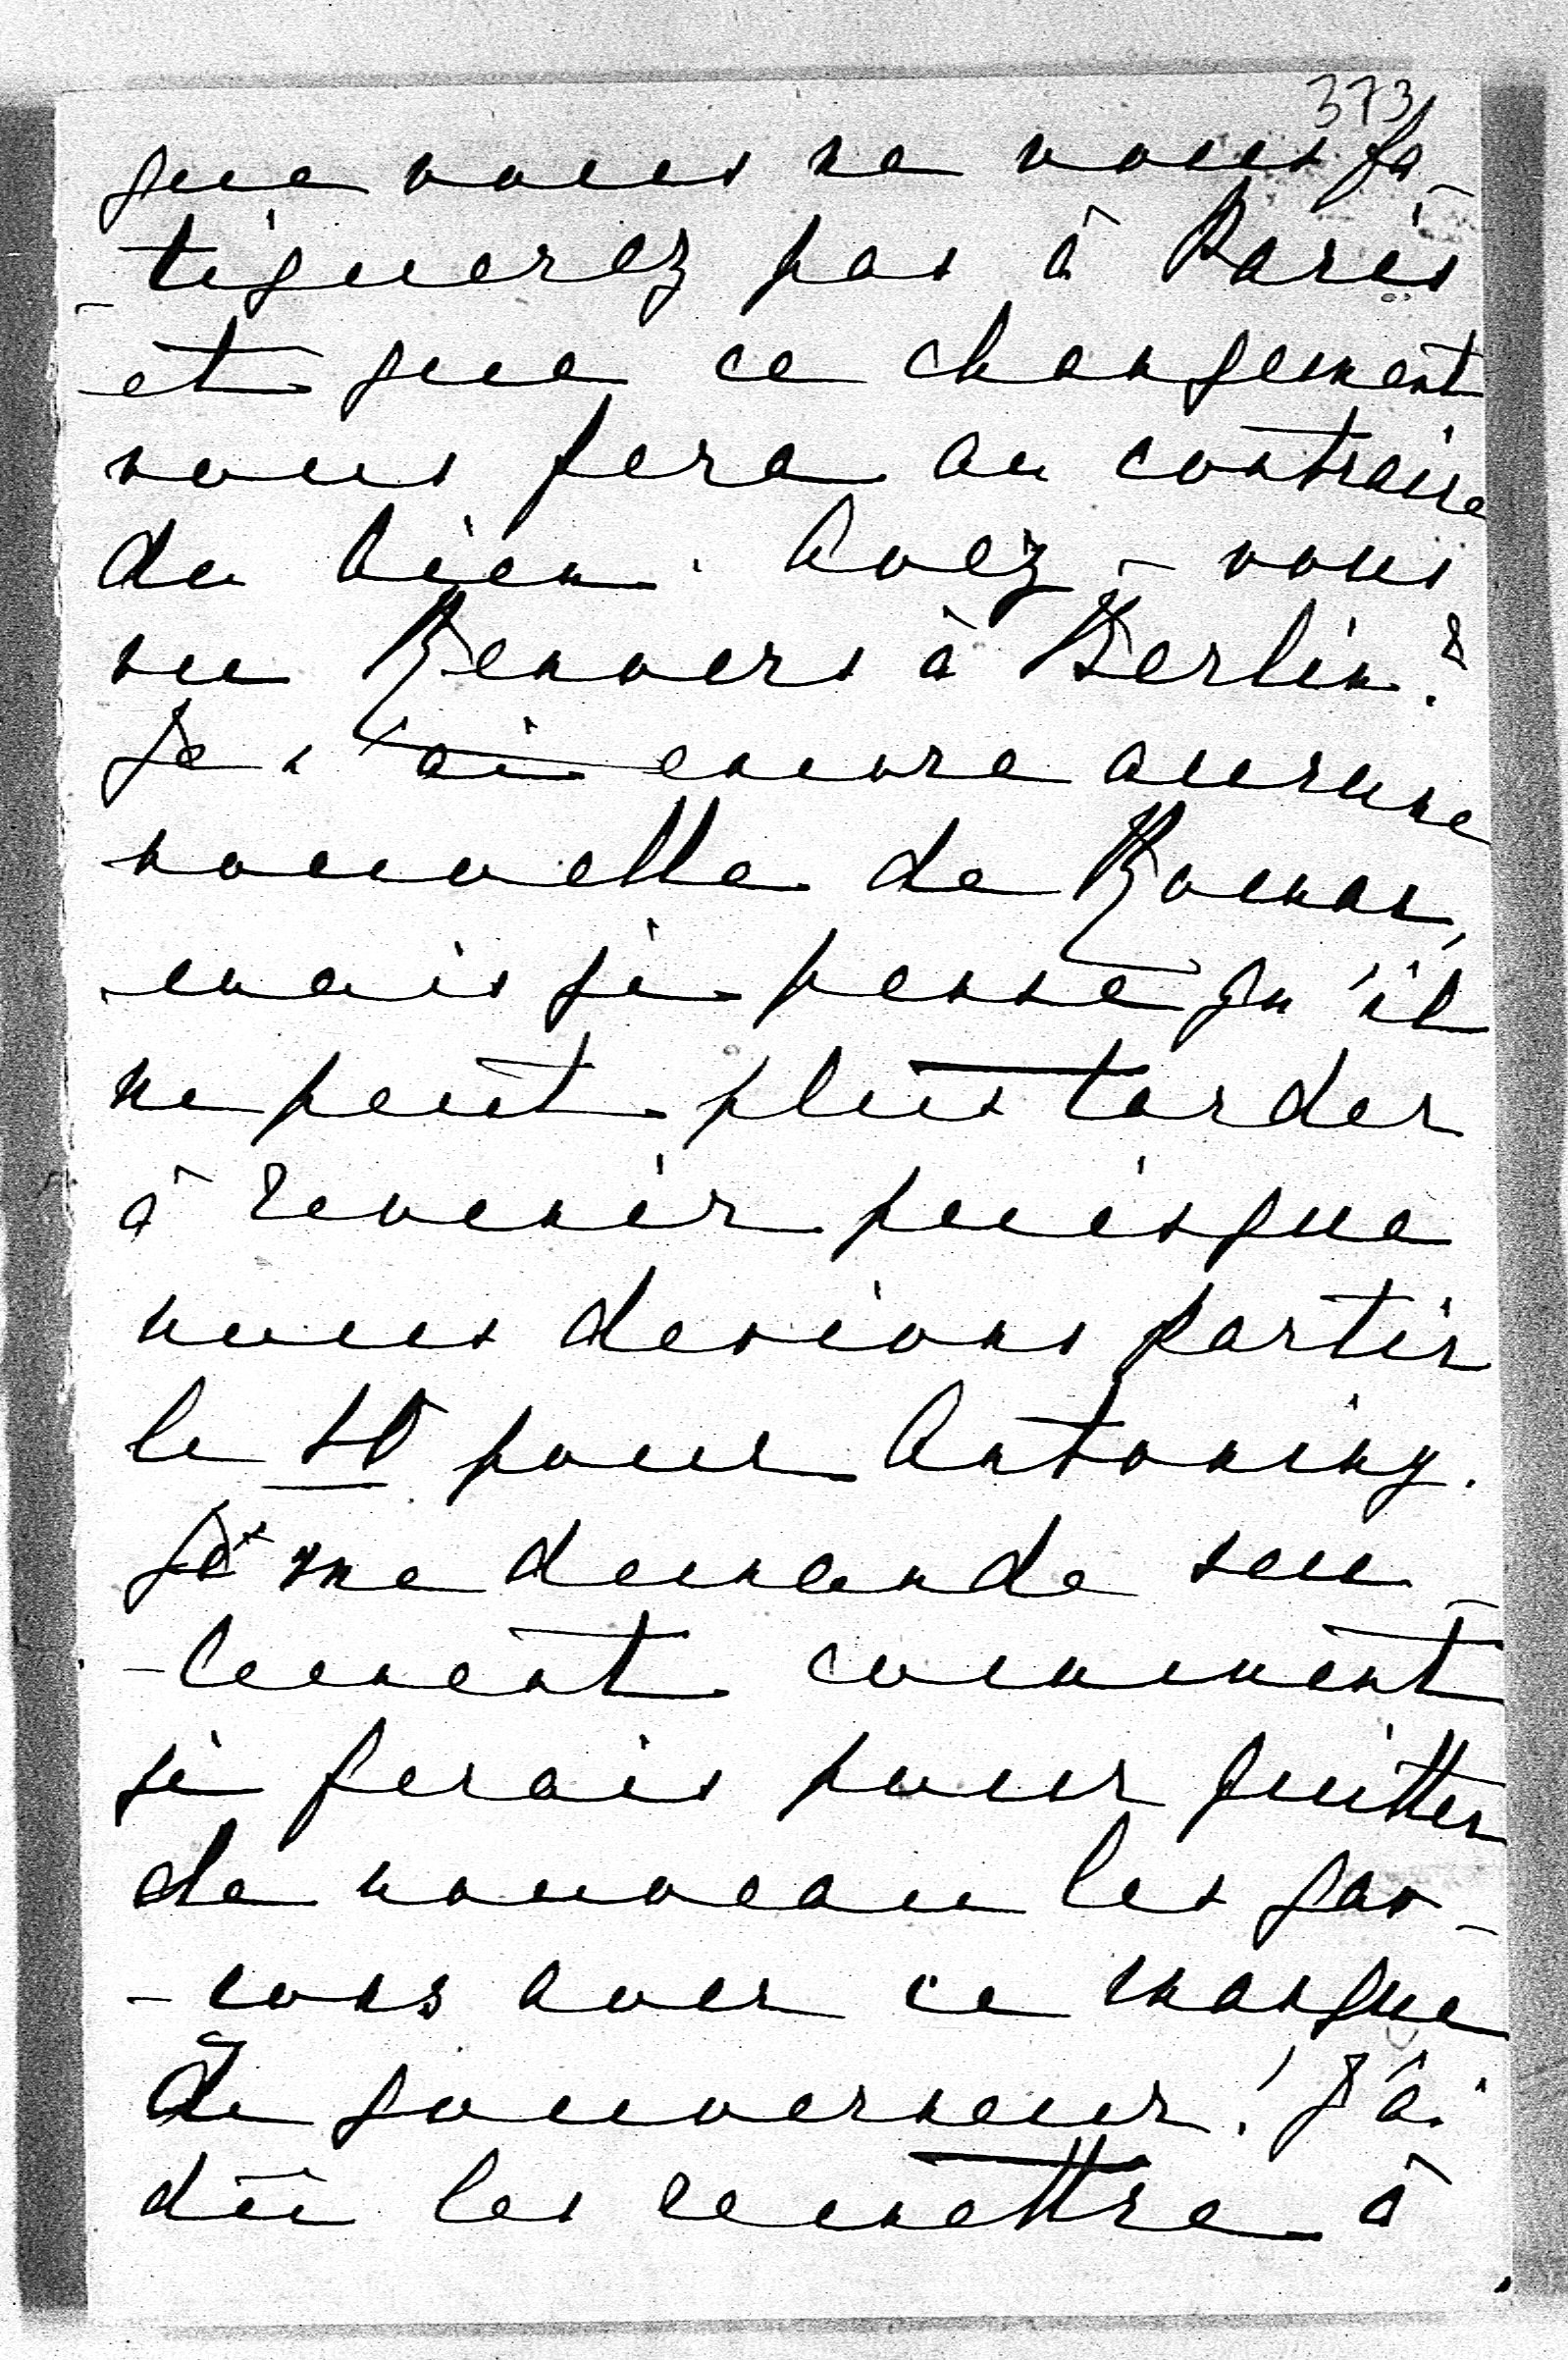 373
que vous ne vous fa-
-tiguerez pas à Paris
et que ce changement
vous fera au contraire
du bien. Avez-vous
vu Renvers à Berlin?
Je n'ai encore aucune
nouvelle de Roman,
mais je pense qu'il
ne peut plus tarder
à revenir puisque
nous devions partir
le 10 pour Antoniny.
Je me demande seu-
-lement comment
je ferais pour quitter
de nouveau les gar-
-cons avec ce manque
de gouverneur! J'ai
dû les remettre à